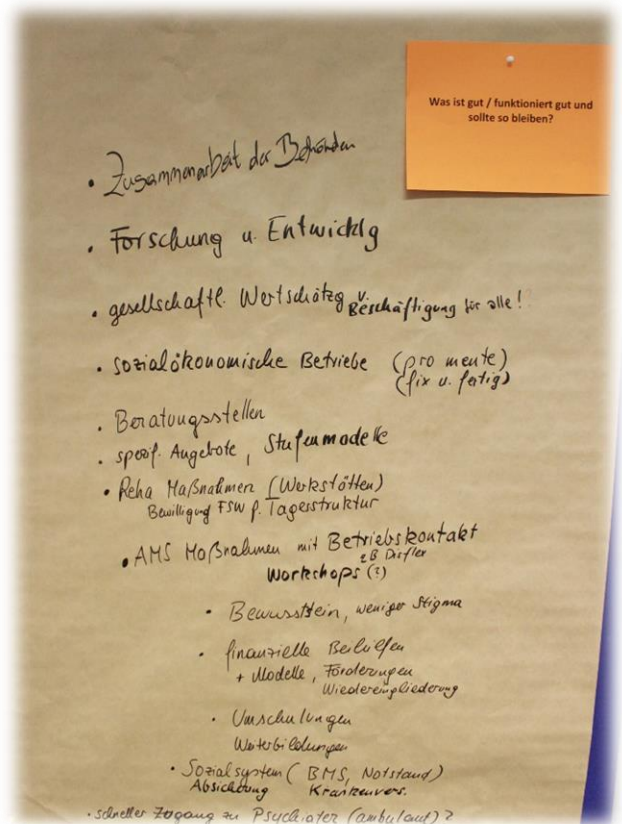 Was ist gut / funktioniert gut und
sollte so bleiben?
• Zusammenarbeit der Behörden
• Forschung u. Entwicklg
• gesellschaftl. Wertschätzg v. Beschäftigung für alle!
• sozialökonomische Betriebe (pro mente)
(fix u. fertig)
• Beratungsstellen
• spezif. Angebote, Stufenmodelle
• Reha Maßnahmen (Werkstätten)
Bewilligung FSW f. Tagesstruktur
• AMS Maßnahmen mit Betriebskontakt
zB
Workshops (?)
• Bewusstsein, weniger Stigma
• finanzielle Beihilfen
+ Modelle, Förderungen
Wiedereingliederung
• Umschulungen
Weiterbildungen
• Sozialsystem (BMS, Notstand)
Absicherung Krankenvers.
• schneller Zugang zu Psychiater (ambulant)?